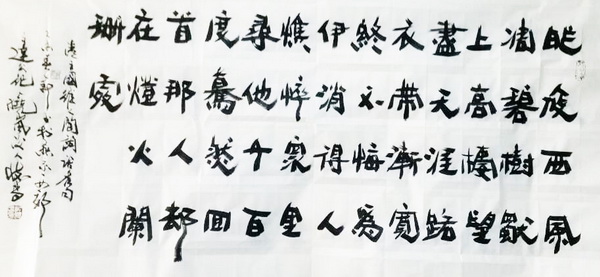 昨夜西風
凋碧樹獨
上高樓望
盡天涯路
衣帶漸寬
終不悔為
伊消得人
憔悴衆里
尋他千百
度驀然回
首那人却
在燈火闌
珊處
王國維人間詞話句